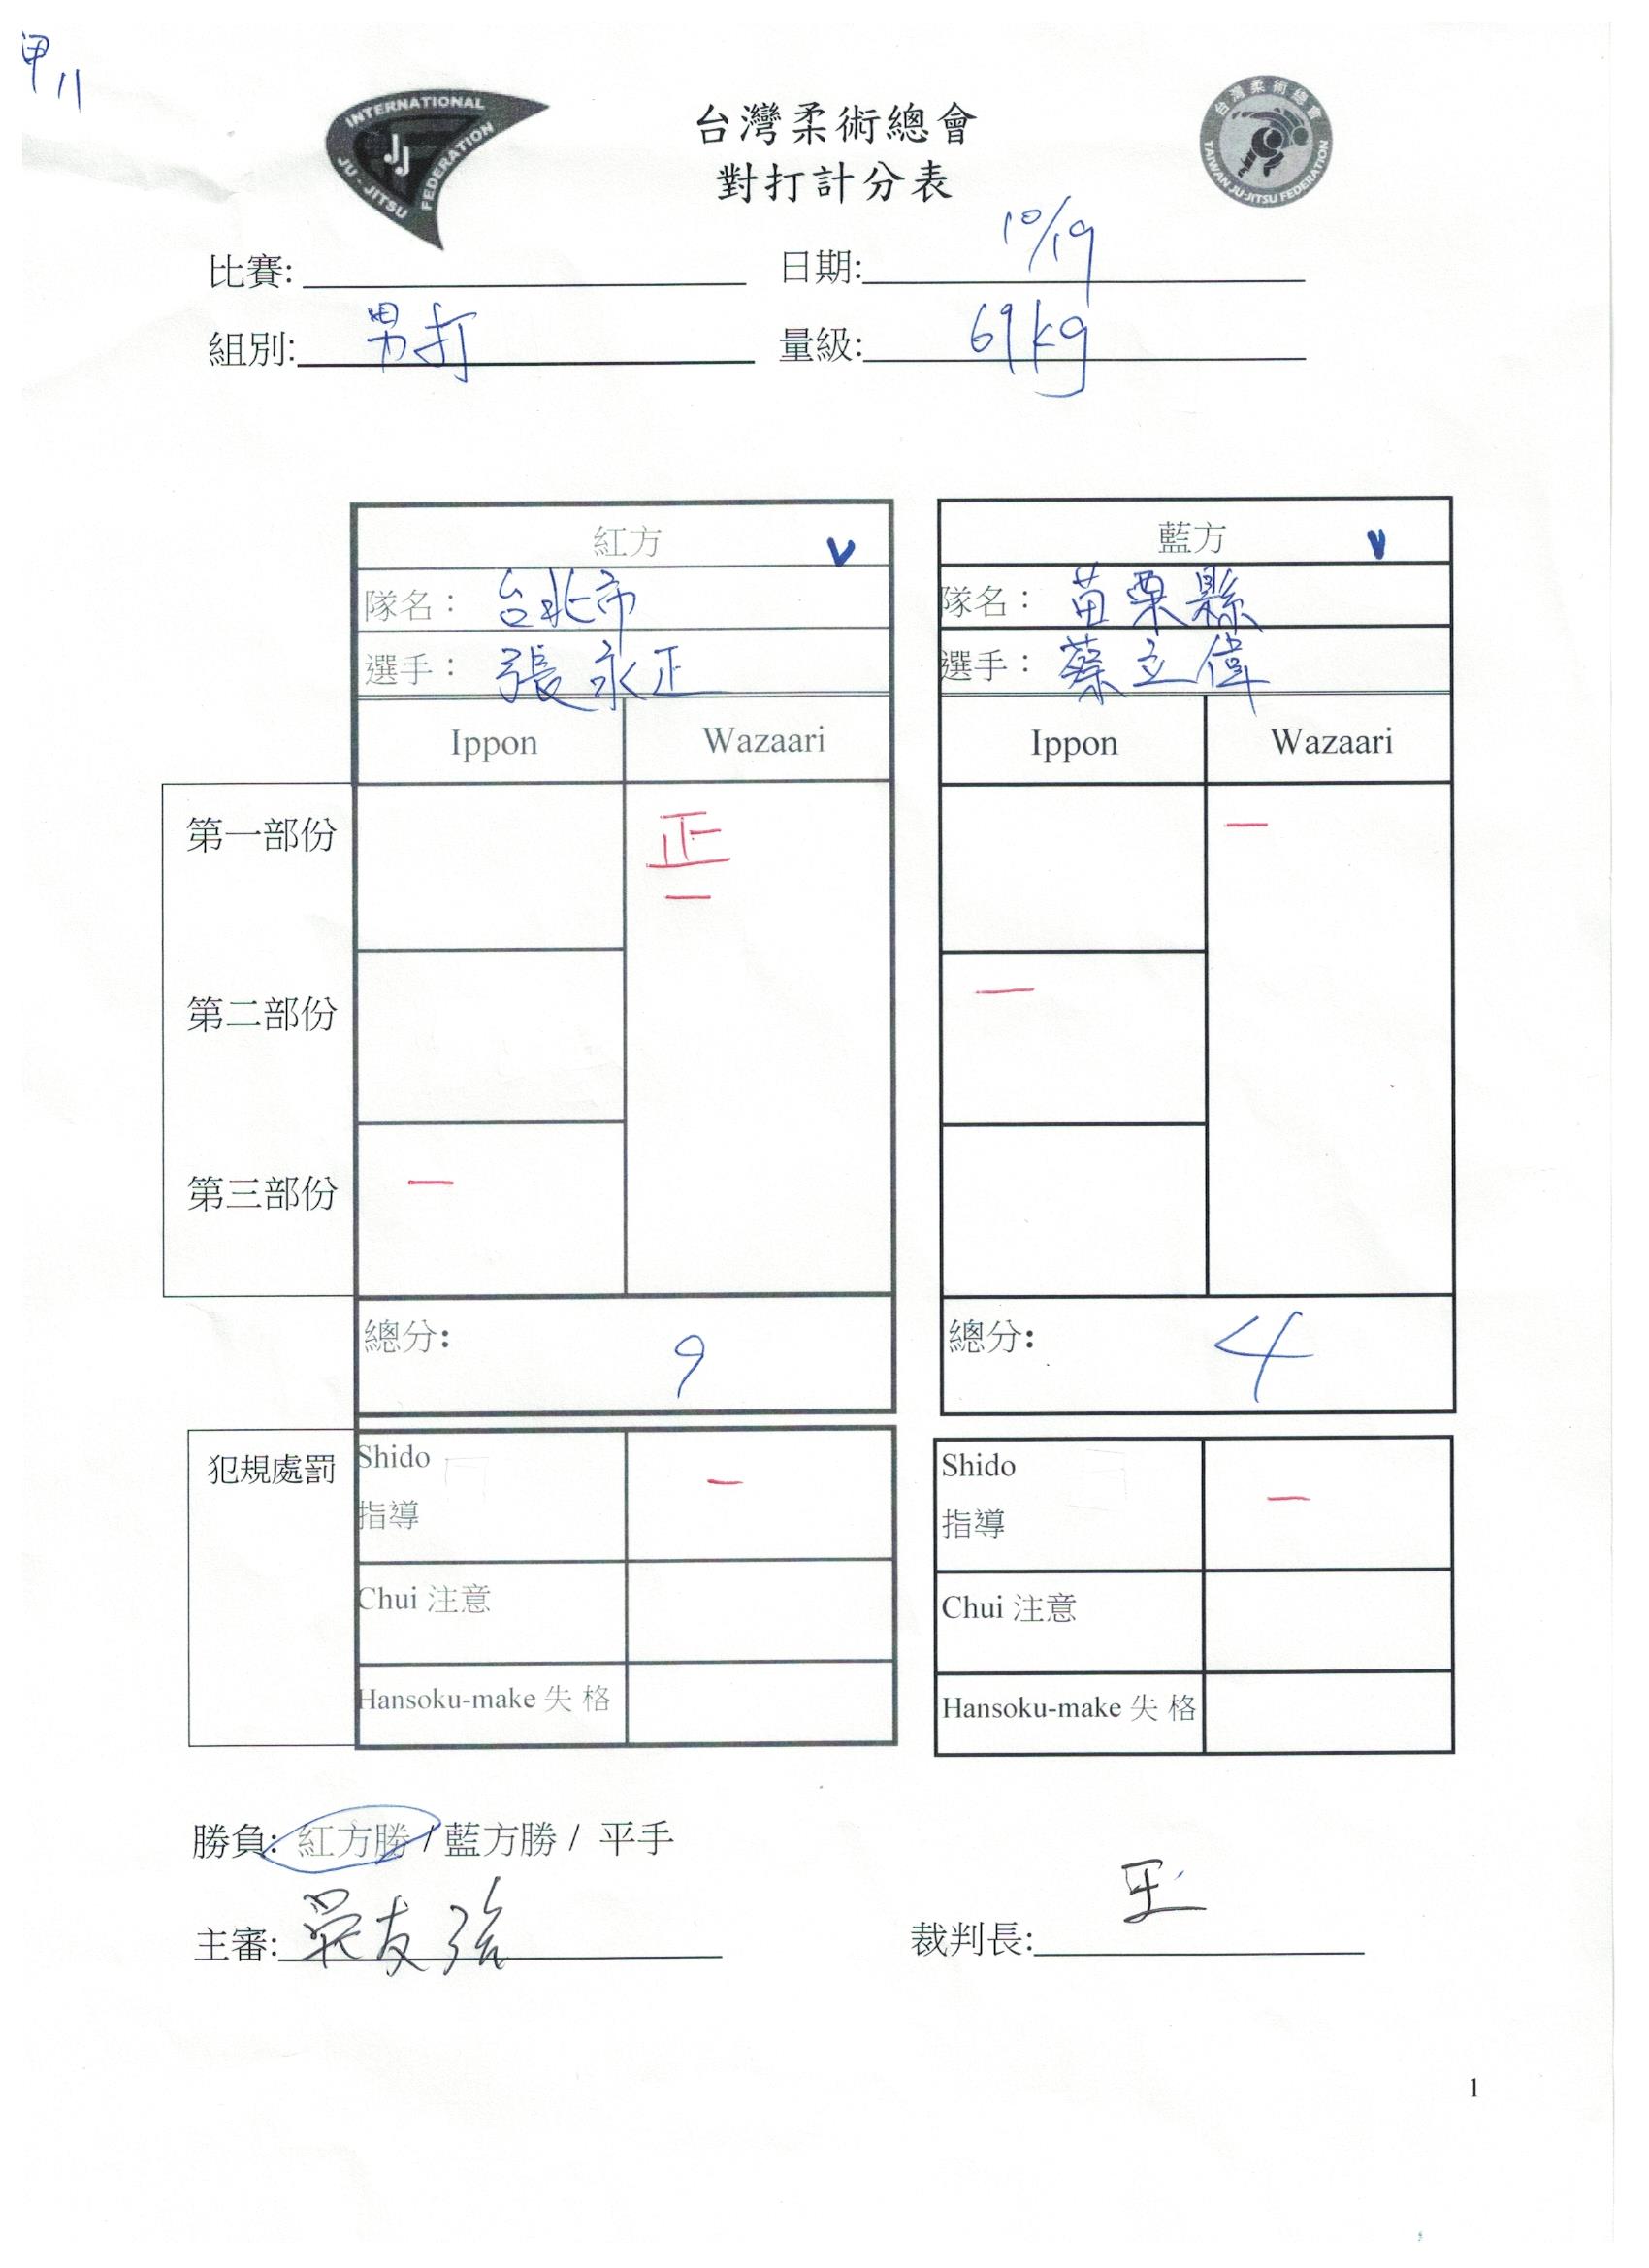 甲11
INTERNATIONAL JU-JITSU FEDERATION
JJ
台灣柔術總會
對打計分表
台灣柔術總會 TAIWAN JU-JITSU FEDERATION
比賽: 日期: 10/19
組別: 男打 量級: 69kg
紅方 v 藍方 v
隊名： 台北市 隊名： 苗栗縣
選手： 張永正 選手： 蔡立偉
Ippon Wazaari Ippon Wazaari
第一部份 正 一 一
第二部份 一
第三部份 一
總分: 9 總分: 4
犯規處罰 Shido 指導 一 Shido 指導 一
Chui 注意 Chui 注意
Hansoku-make 失 格 Hansoku-make 失 格
勝負: 紅方勝 / 藍方勝 / 平手
主審: 裁判長:
1